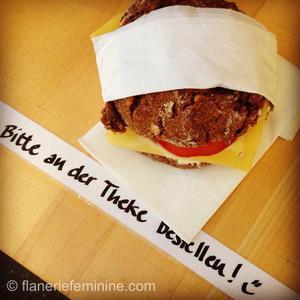 Bitte an der Theke bestellen! :)
© flaneriefeminine.com